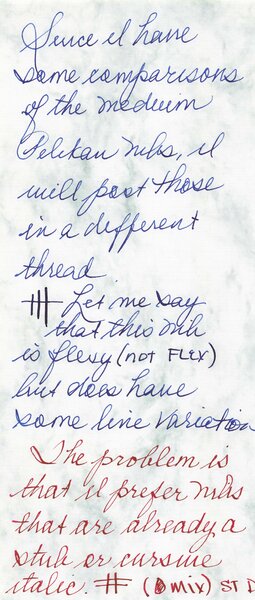 Since I have
some comparisons
of the medium
Pelikan nibs, I
will post those
in a different
thread
Let me say
that this nib
is flexy (not FLEX)
but does have
some line variation
The problem is
that I prefer nibs
that are already a
stub or cursive
italic. (D mix) ST D